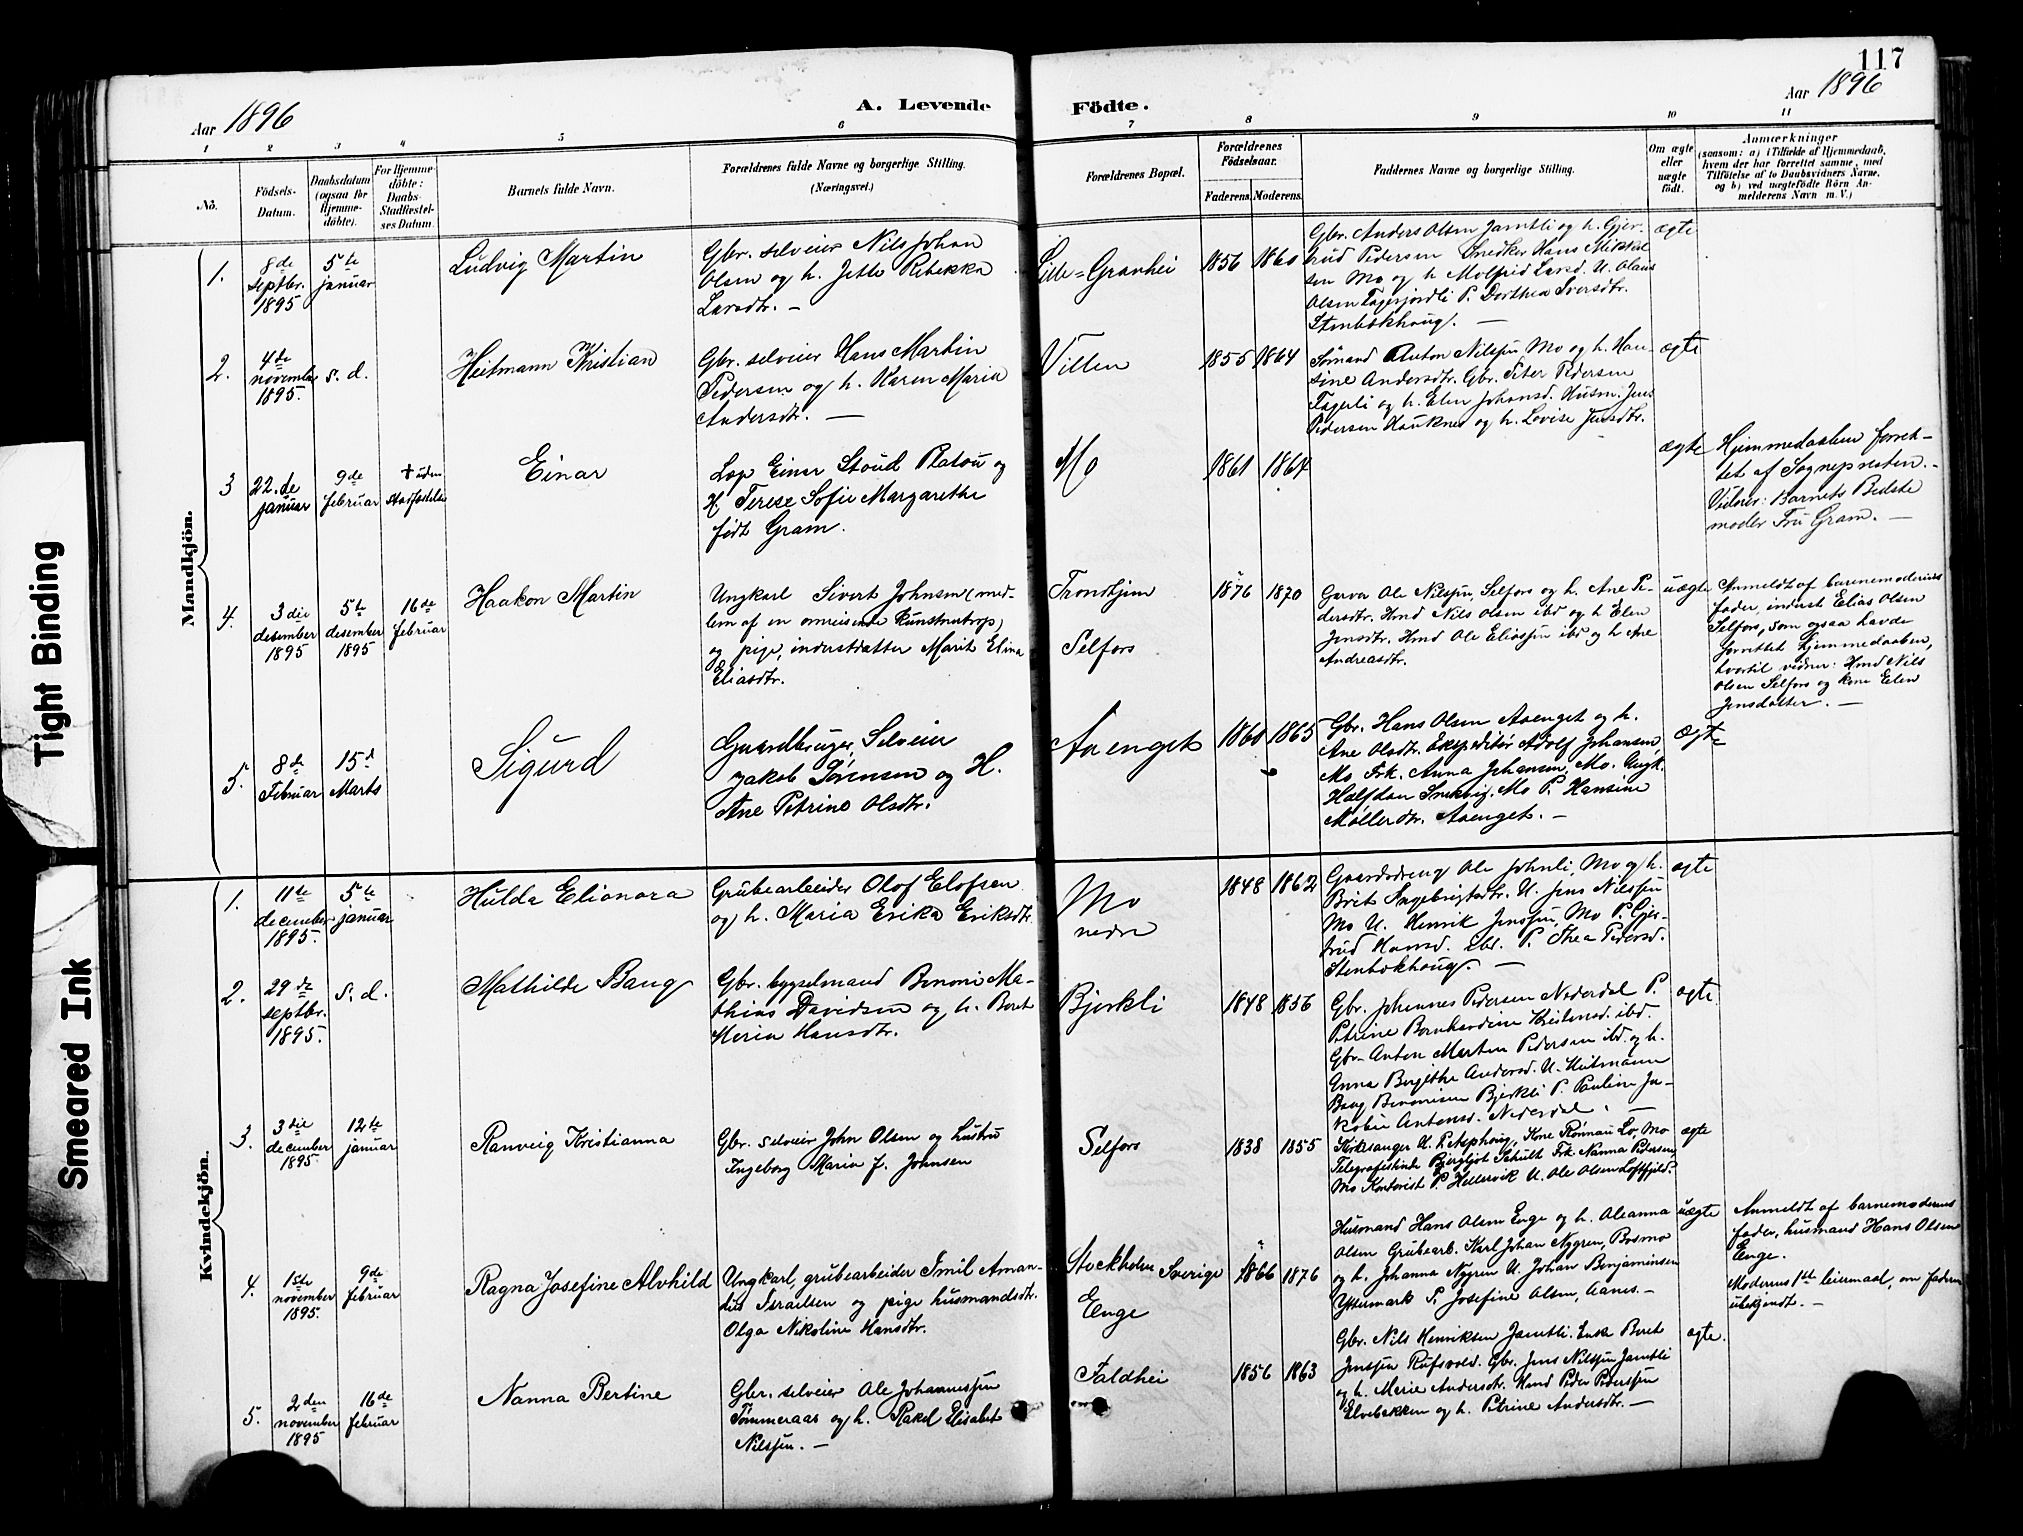 117
Aar 1896
A. Levende
Födte.
Aar 1896
1 2 3 4 5 6 7 8 9 10 11
No.
Födsels-
Datum.
Daabsdatum
(ogsaa for
Hjemme-
döbte).
For Hjemme-
döbte:
Daabs-
Stadfæstel-
ses Datum.
Barnets fulde Navn.
Forældrenes fulde Navne og borgerlige Stilling.
(Næringsvei.)
Forældrenes Bopæl.
Forældrenes
Födselsaar.
Faderens. Moderens.
Faddernes Navne og borgerlige Stilling.
Om ægte
eller
uægte
födt.
Anmærkninger
(saasom: a) i Tilfælde af Hjemmedaab,
hvem der har forrettet samme, med
Tilföielse af to Daabsvidners Navne,
og b) ved uægtefödte Börn An-
melderens Navn m. V.)
Mandkjön.
1.
8de
septbr.
1895
5te
januar
Ludvig Martin
Gbr. selveier Nils Johan
Olsen og h. Jette Rebekka
Larsdtr. —
Lille=Granhei
1856 1860
Gbr. Anders Olsen Jamtli og h. Gjer-
trud Pedersen Snedker Hans Mikkel
sen Mo og h Molfrid Larsd. U. Olaus
Olsen Fagerjordli P. Dorthea Iversdtr.
Stenbækhaug. —
ægte
2.
4de
november
1895.
s. d.
Heitmann Kristian
Gbr. selveier Hans Martin
Pedersen og h. Karen Maria
Andersdtr. —
Villen
1855 1864
Sømand Anton Nilssen, Mo og h. Han-
sine Andersdtr. Gbr. Peter Pedersen
Fagerli og h. Elen Johansd. Husm. Jens
Pedersen Hauknes og h. Lovise Jensdtr.
ægte
3
22.de
januar
9de
februar
† uden
stadfæstelse
Einar
Læge Einar Stoud Platou og
H. Terese Sofie Margarethe
født Gram.
Mo
1861 1864
ægte
Hjemmedaaben forret-
tet af Sognepresten. -
Vidner: Barnets Bedste
moder Fru Gram. —
4.
3die
desember
1895
5te
desember
1895
16de
februar
Haakon Martin
Ungkarl Sivert Johnsen (med-
lem af en omreisende kunstnertrop)
og pige, inderstdatter Marit Elina
Eliasdtr.
Trondhjem
Selfors
1876 1870
Garver Ole Nilssen Selfors og h. Ane Pe-
dersdtr. Hmd Nils Olsen ibd og h Elen
Jensdtr. Hmd Ole Eliassen ibd og h Ane
Andreasdtr.
uægte
Anmeldt af barnemoderens
fader, inderst Elias Olsen
Selfors, som ogsaa havde
forrettet hjemmedaaben,
hvortil vidner: Hmd Nils
Olsen Selfors og kone Elen
Jensdatter. —
5.
8de
Februar
15d
Marts
Sigurd
Gaardbruger, Selveier
Jakob Sørensen og H.
Ane Petrine Olsdtr.
Aaenget
1860 1865
Gbr. Hans Olsen Aaenget og h.
Ane Olsdtr. Ekspeditør Adolf Johansen,
Mo Frk. Anna Johansen, Mo. Ungk.
Halfdan Snekvig, Mo P. Hansine
Møllerdtr. Aaenget. —
ægte
Kvindekjön.
1.
11te
december
1895.
5te
januar
Hulda Elionora
Grubearbeider Olof Elofsen
og h. Maria Erika Eriksdtr.
Mo
nedre
1848 1862
Gaardsdreng Ole Johnli, Mo og h.
Beret Ingebrigtsdtr. U. Jens Nilssen
Mo U. Henrik Jenssen, Mo P. Gjer-
trud Hansd. ibd. P. Thea Pedersd.
Stenbækhaug. —
ægte
2.
29de
septbr.
1895.
s. d.
Mathilde Baug
Gbr. bygselmand Benoni Ma-
thias Davidsen og h. Beret
Maria Hansdtr.
Bjerkli
1848 1856
Gbr. Johannes Pedersen Nederdal P.
Petrine Bernhardine Kristensd. ibd.
Gbr. Anton Marten Pedersen ibd. og h.
Anna Bergithe Andersd. U. Heitmann
Baug Benonisen Bjerkli P. Pauline Ja-
kobine Antonsd. Nederdal. —
ægte
3.
3die
december
1895.
12te
januar
Ranveig Kristianna
Gbr. selveier John Olsen og hustru
Ingeborg Maria f. Johnsen
Selfors
1838 1855
Kirkesanger U. P. Asphoug, Kone Rønnau Lo, Mo
Telegrafistinde Bergljot Schult Frk. Nanna Pedersen,
Mo Kontorist P. Hellesvik U. Ole Olsen Loftfjeld.
ægte
4.
1ste
november
1895.
9de
februar
Ragna Josefine Alvhild
Ungkarl, grubearbeider Emil Aman-
dus Israelsen og pige husmandsdtr.
Olga Nikoline Hansdtr.
Stockholm Sverige
Enge
1866 1876
Husmand Hans Olsen Enge og h. Oleanna
Olsen Grubearb. Karl Johan Nygren, Bosmo
og h. Johanna Nygren U. Johan Benjaminsen
Yttermark P. Josefine Olsen, Aanes. —
uægte
Anmeldt af barnemoderens
fader, husmand Hans Olsen
Enge.
Moderens 1ste leiermaal, om faderen
ubekjendt. —
5.
2den
november
1895
16de
februar
Nanna Bertine
Gbr. selveier Ole Johannessen
Tømmeraas og h. Rakel Elisabet
Nilssen. —
Faldhei
1856 1863
Gbr. Nils Henriksen Jamtli. Enke Beret
Jenssen Rufsvold. Gbr. Jens Nilssen Jamtli
og h. Merie Andersdtr. Hmd Peder Pederssen
Elvebakken og h. Petrine Andersdtr. —
ægte.
Tight Binding
Smeared Ink